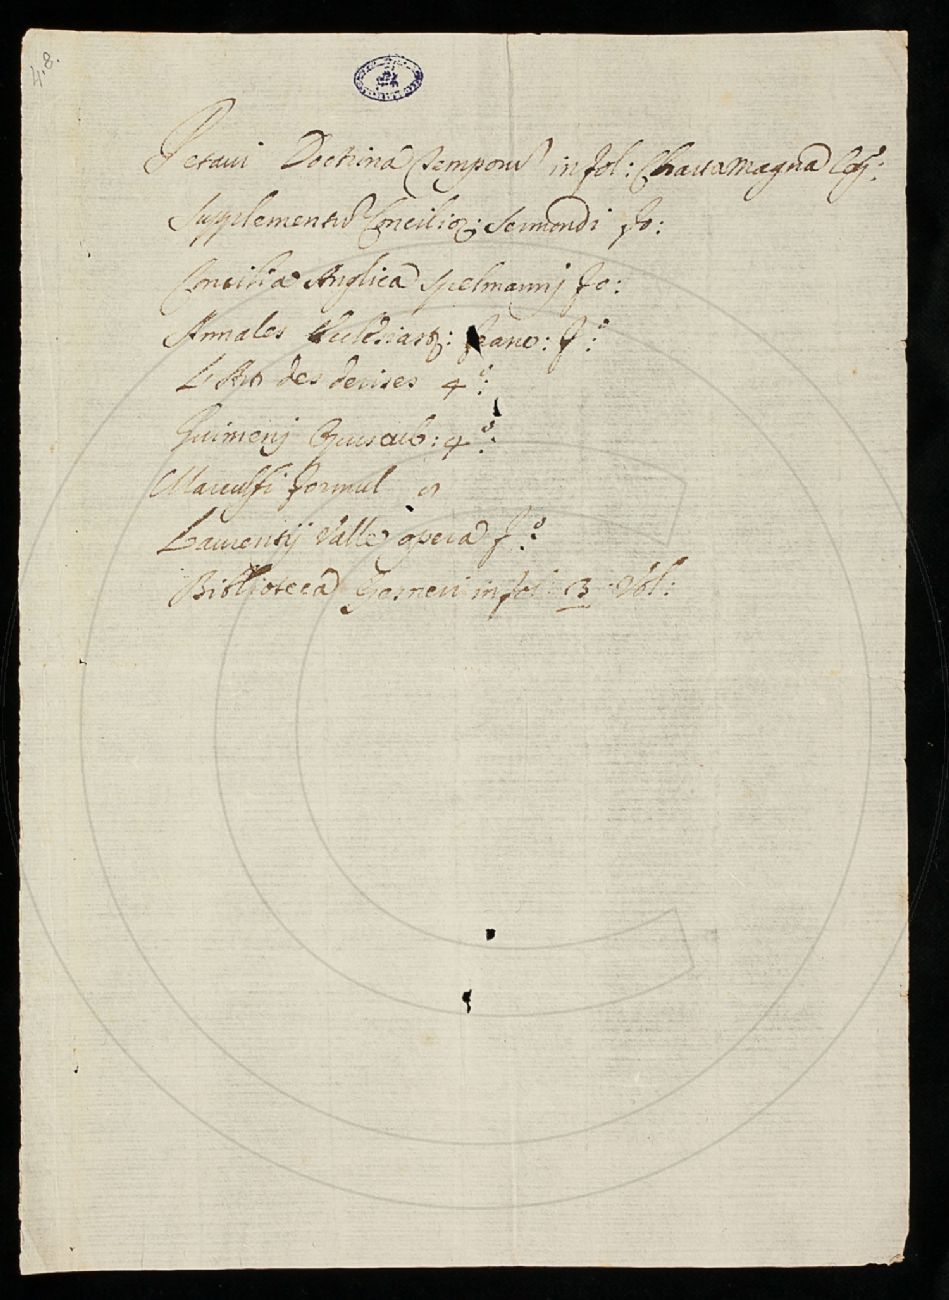 48.
Petaui Doctrina Temporũ in fol: Charta Magna
Supplementũ Concilio: Sermondi fo:
Concilia Anglica Spelmannj fo:
Annales Ecclesiast: franc: fº:
L'Art des deuises 4º:
Guimenj 4º:
Marculfi formul
Laurentij Valle opera fº:
Biblioteca Gesneri in fol 13 Vol: